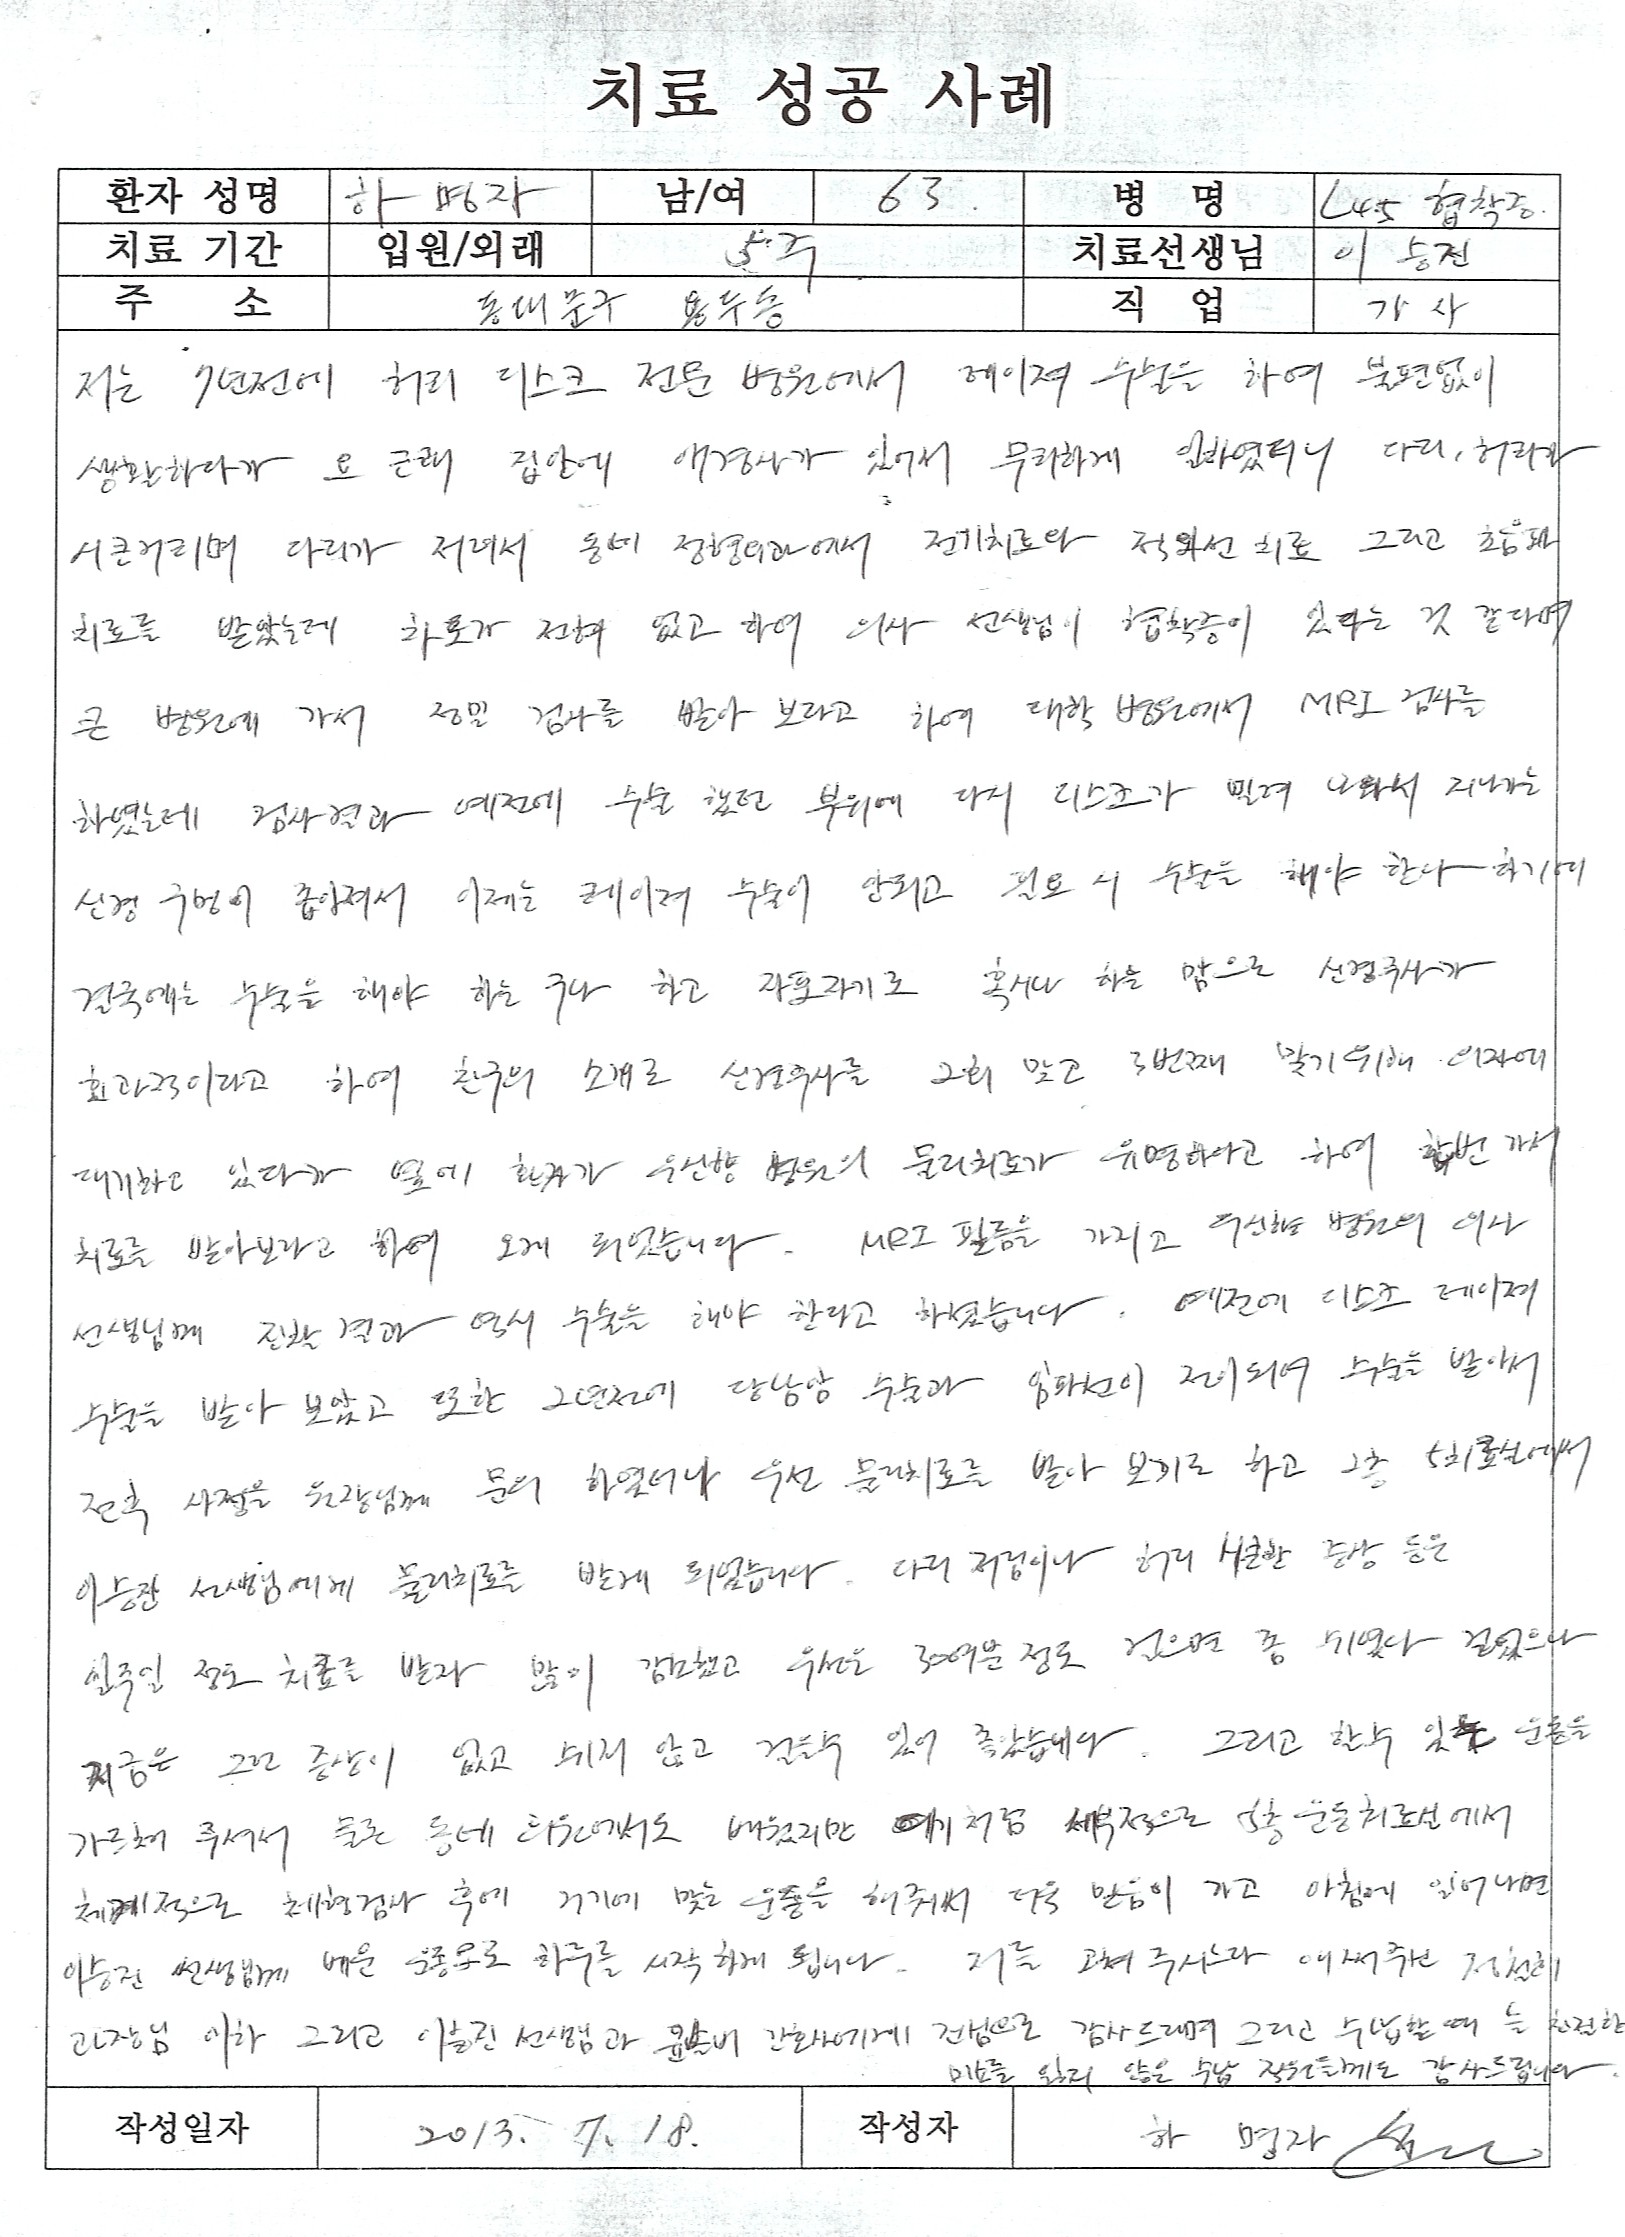 치료 성공 사례
환자 성명 하명자 남/여 63. 병 명 L45 협착증.
치료 기간 입원/외래 5주 치료선생님 이승진
주 소 동대문구 용두동 직 업 가사
저는 7년전에 허리 디스크 전문 병원에서 레이져 수술을 하여 불편없이
생활하다가 요 근래 집안에 애경사가 있어서 무리하게 일하였더니 다리, 허리가
시큰거리며 다리가 저려서 동네 정형외과에서 전기치료와 적외선 치료 그리고 초음파
치료를 받았는데 차도가 전혀 없고 하여 의사 선생님이 협착증이 있다는 것 같다며
큰 병원에 가서 정밀 검사를 받아 보라고 하여 대학 병원에서 MRI 검사를
하였는데 검사결과 예전에 수술 했던 부위에 다시 디스크가 밀려 나와서 지나가는
신경 구멍이 좁아져서 이제는 레이져 수술이 안되고 필요 시 수술을 해야 한다 하기에
결국에는 수술을 해야 하는 구나 하고 자포자기로 혹시나 하는 맘으로 신경주사가
효과적이라고 하여 친구의 소개로 신경주사를 2회 맞고 3번째 맞기위해 의자에
대기하고 있다가 옆에 환자가 우신향 병원의 물리치료가 유명하다고 하여 한번 가서
치료를 받아보라고 하여 오게 되었습니다. MRI 필름을 가지고 우신향 병원의 의사
선생님께 진찰 결과 역시 수술을 해야 한다고 하셨습니다. 예전에 디스크 레이져
수술을 받아 보았고 또한 2년전에 담낭암 수술과 임파선이 전이되어 수술을 받아서
전후 사정을 원장님께 문의 하였더니 우선 물리치료를 받아 보기로 하고 2층 5치료실에서
이승진 선생님에게 물리치료를 받게 되었습니다. 다리 저림이나 허리 시큰한 증상 등은
일주일 정도 치료를 받자 많이 감소했고 우선은 30여분 정도 걸으면 좀 쉬였다 걸었으나
지금은 그런 증상이 없고 쉬지 않고 걸을수 있어 좋았습니다. 그리고 할수 있는 운동을
가르쳐 주셔서 물론 동네 의원에서도 배웠지만 여기처럼 세부적으로 5층 운동치료실에서
체계적으로 체형검사 후에 거기에 맞는 운동을 해줘서 더욱 믿음이 가고 아침에 일어나면
이승진 선생님께 배운 운동으로 하루를 시작하게 됩니다. 저를 고쳐 주시느라 애써주신 정철희
과장님 이하 그리고 이승진 선생님과 간호사에게 진심으로 감사드리며 그리고 수납할때 늘 친절한
미소를 잃지 않은 수납 직원들께도 감사드립니다.
작성일자 2013. 7. 18. 작성자 하 명자